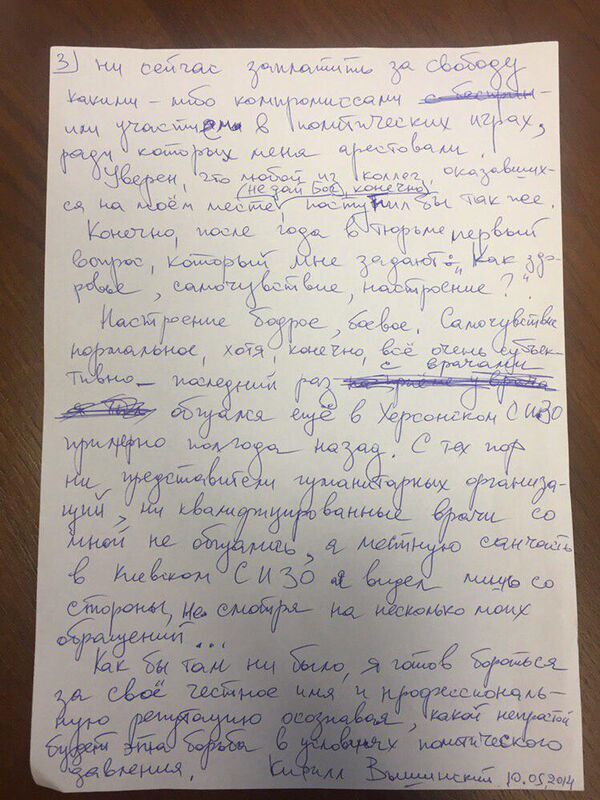 3) ни сейчас заплатить за свободу
какими-либо компромиссами
или участием в политических играх,
ради которых меня арестовали.
Уверен, что любой из коллег, оказавших-
(не дай Бог, конечно)
ся на моём месте, поступил бы так же.
Конечно, после года в тюрьме первый
вопрос, который мне задают: „Как здо-
ровье, самочувствие, настроение?“
Настроение бодрое, боевое. Самочувствие
нормальное, хотя, конечно, всё очень субъек-
с врачами
тивно – последний раз
общался ещё в Херсонском СИЗО
примерно полгода назад. С тех пор
ни представители гуманитарных организа-
ций, ни квалифицированные врачи со
мной не общались, а местную санчасть
в Киевском СИЗО я видел лишь со
стороны, не смотря на несколько моих
обращений...
Как бы там ни было, я готов бороться
за своё честное имя и профессиональ-
ную репутацию осознавая, какой непростой
будет эта борьба в условиях политического
давления. Кирилл Вышинский